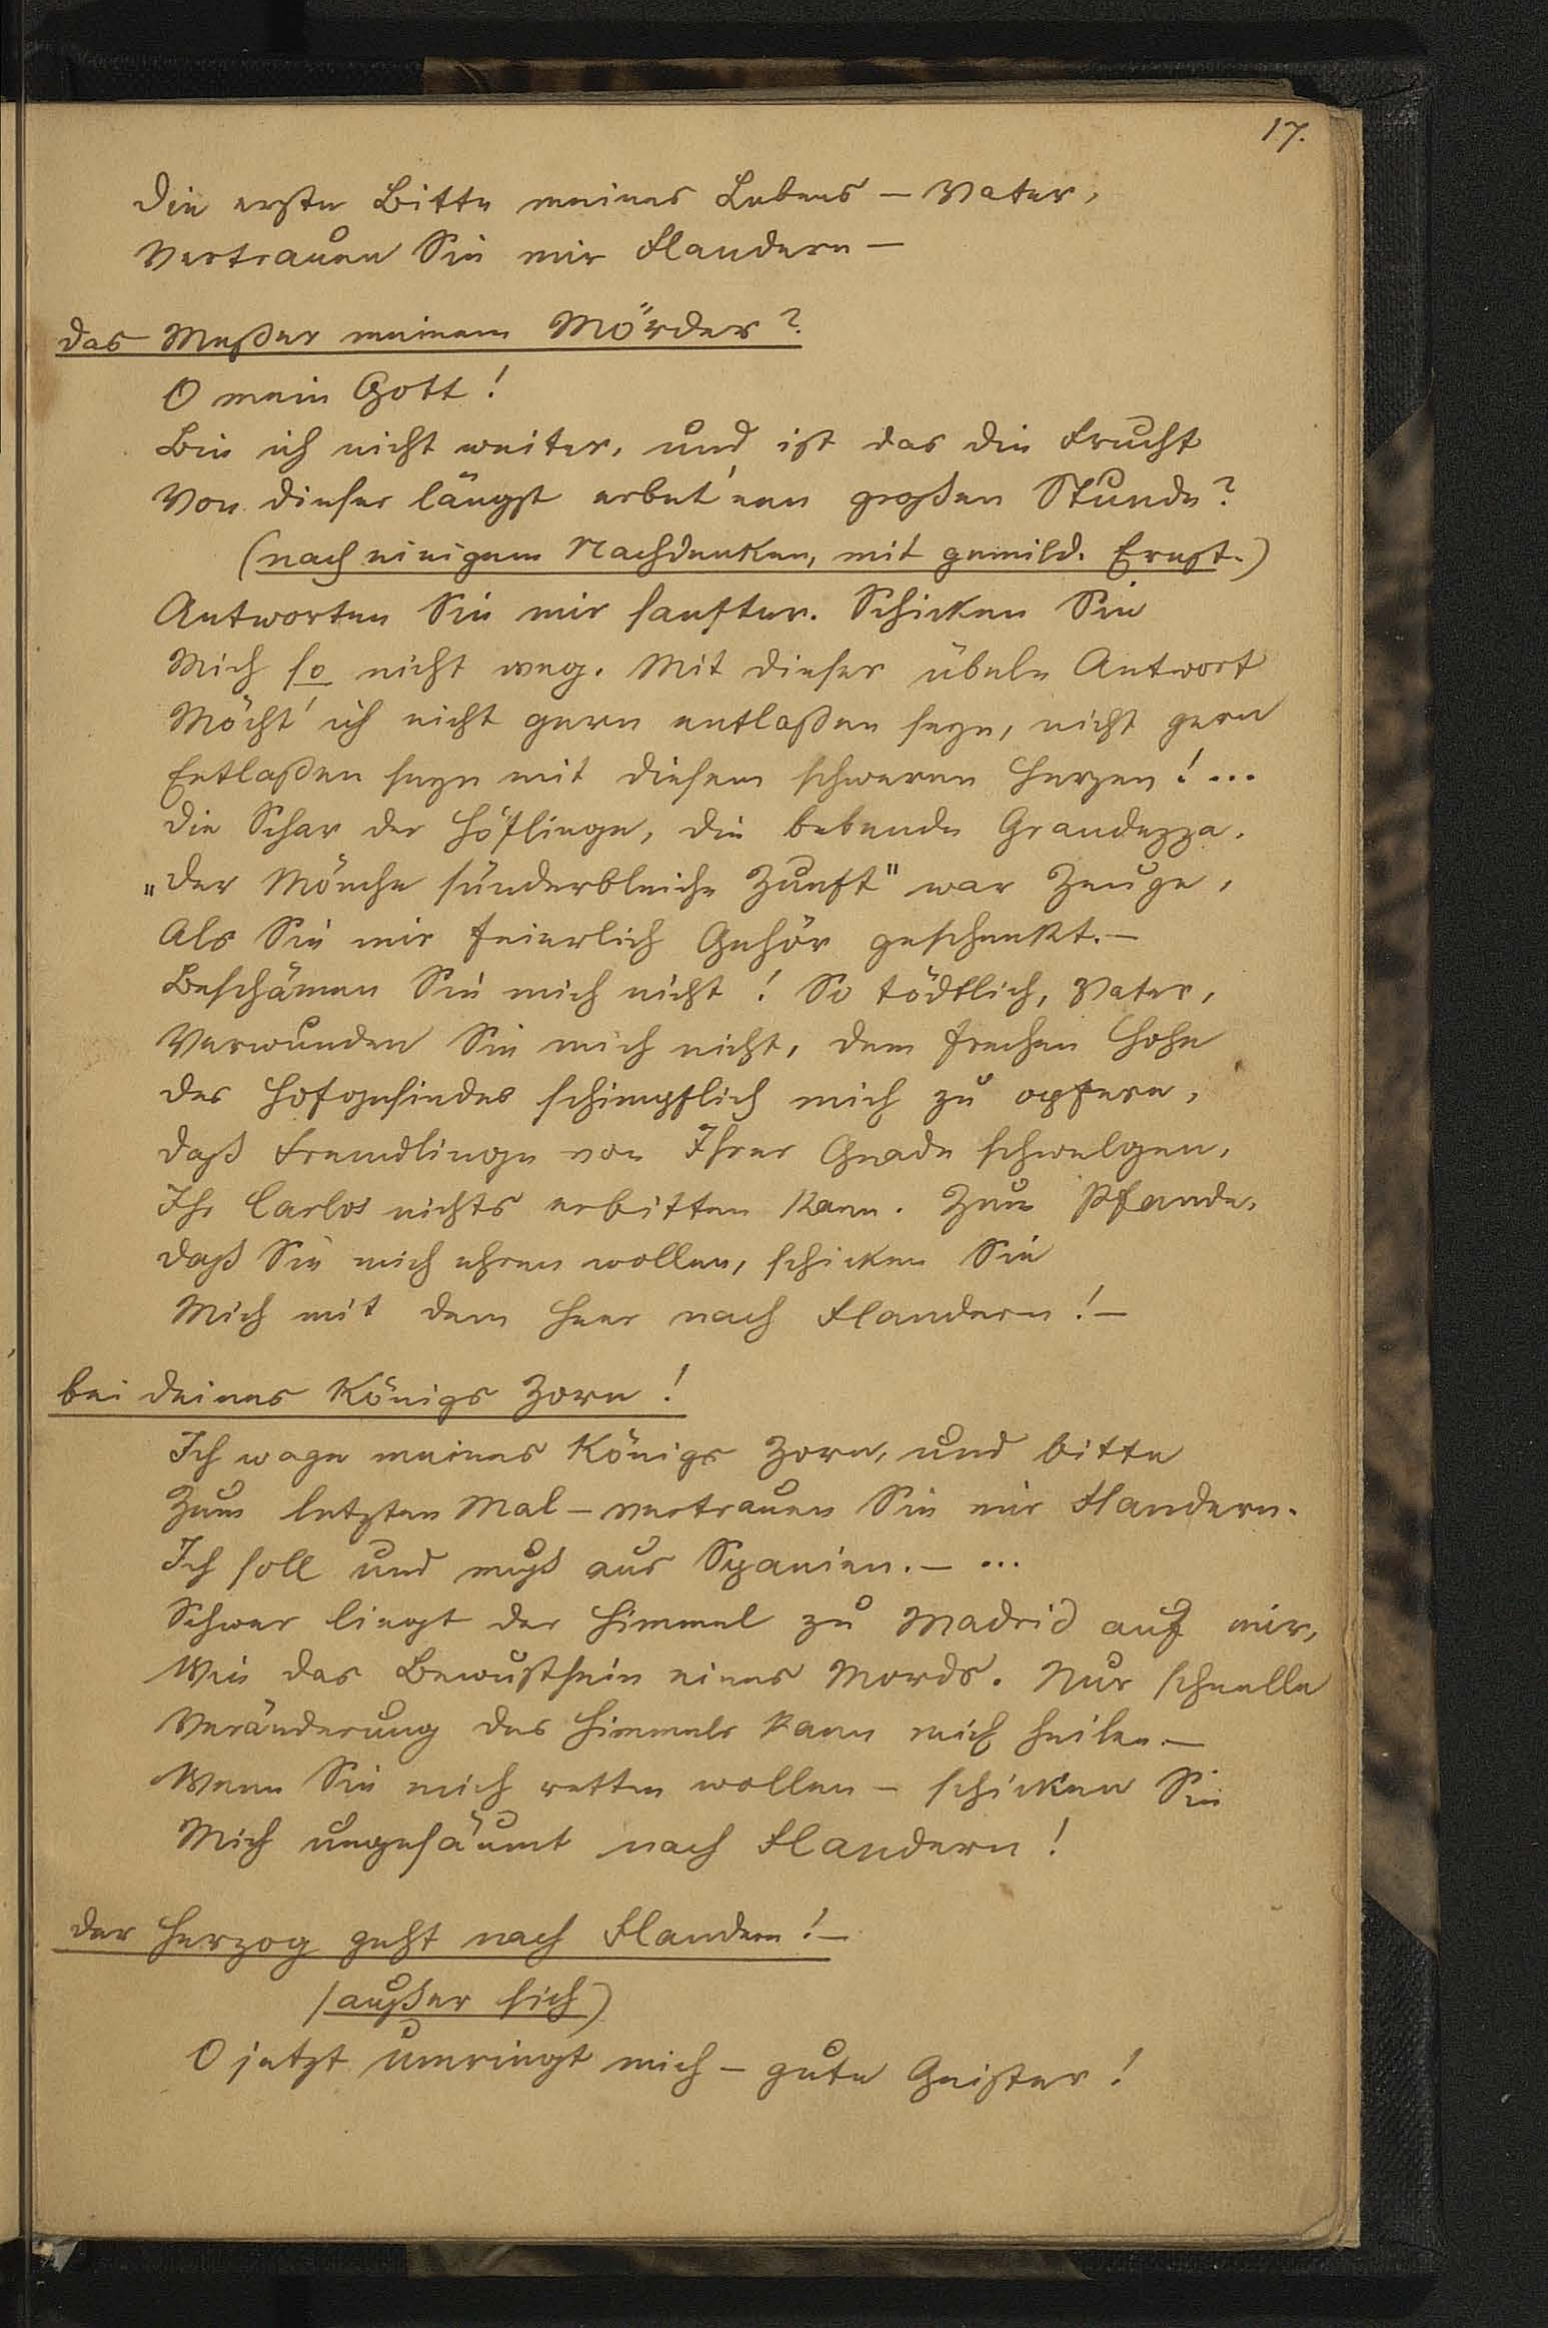 17.
Die erste Bitte meines Lebens – Vater,
Vertrauen Sie mir Flandern –
das Meßer meinem Mörder?
O mein Gott!
Bin ich nicht weiter, und ist das die Frucht
Von dieser längst erbet'nen großen Stunde?
(nach einigem Nachdenken, mit gemild. Ernst.)
Antworten Sie mir sanfter. Schicken Sie
Mich so nicht weg. Mit dieser übeln Antwort
Möcht' ich nicht gern entlaßen seyn, nicht gern
Entlaßen seyn mit diesem schweren Herzen! ...
Die Schar der Höflinge, die bebende Grandezza,
„Der Mönche sünderbleiche Zunft" war Zeuge,
Als Sie mir feierlich Gehör geschenkt. –
Beschämen Sie mich nicht! So tödtlich, Vater,
Verwunden Sie mich nicht, dem frechen Hohn
Des Hofgesindes schimpflich mich zu opfern,
Daß Fremdlinge von Ihrer Gnade schwelgen,
Ihr Carlos nichts erbitten kann. Zum Pfande,
Daß Sie mich ehren wollen, schicken Sie
Mich mit dem Heer nach Flandern! –
bei deines Königs Zorn!
Ich wage meines Königs Zorn, und bitte
Zum letzten Mal – vertrauen Sie mir Flandern.
Ich soll und muß aus Spanien. – ...
Schwer liegt der Himmel zu Madrid auf mir,
Wie das Bewußtsein eines Mords. Nur schnelle
Veränderung des Himmels kann mich heilen. –
Wenn Sie mich retten wollen – schicken Sie
Mich ungesäumt nach Flandern!
der Herzog geht nach Flandern! –
(außer sich)
O jetzt umringt mich – gute Geister!